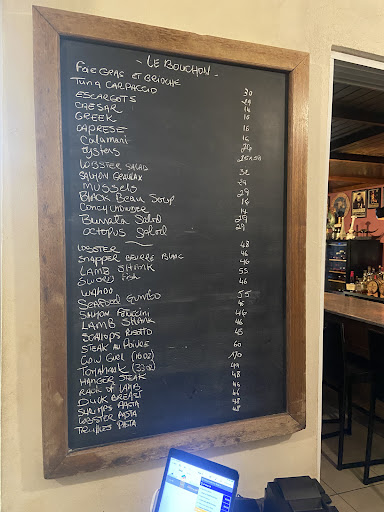 - LE BOUCHON -
Foie GRAS ET BRIOCHE
Tuna CARPACCIO 30
ESCARGOTS 24
CAESAR 14
GREEK 16
CAPRESE 16
Calamari 16
oysters 24
LOBSTER SALAD
SALMON GRAVLAX 32
MUSSELS 29
BLACK Bean Soup 29
CONCH CHOWDER 16
Burrata Salad 14
OCTOPUS Salad 29
29
LOBSTER 48
SNAPPER BEURRE BLANC 46
LAMB SHANK 46
SWORD fish 55
WAHOO 46
SEAFOOD GUMBO 55
SALMON FETUCCINI
LAMB SHANK 46
SCALLOPS RISOTTO 46
STEAK AU POIVRE 45
COW GIRL (16 oz) 60
TOMAHAWK (33 oz) 170
HANGER STEAK 49
RACK of LAMB 48
DUCK BREAST 46
SHRIMPS PASTA 46
LOBSTER PASTA 48
TRUFFLES PASTA 48